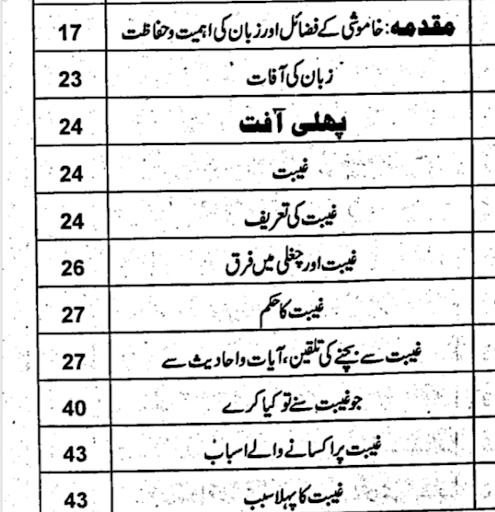 مقدمہ: خاموشی کے فضائل اور زبان کی اہمیت و حفاظت 17
زبان کی آفات 23
پہلی آفت 24
غیبت 24
غیبت کی تعریف 24
غیبت اور چغلی میں فرق 26
غیبت کا حکم 27
غیبت سے بچنے کی تلقین، آیات و احادیث سے 27
جو غیبت سنے تو کیا کرے 40
غیبت پر اکسانے والے اسباب 43
غیبت کا پہلا سبب 43